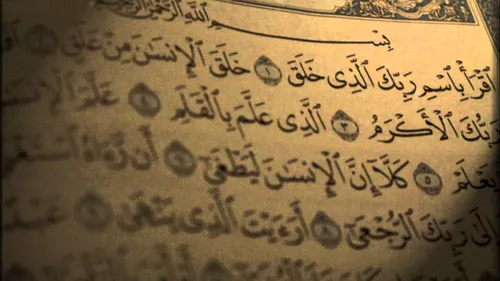 بِسْمِ ٱللَّهِ ٱلرَّحْمَٰنِ ٱلرَّحِيمِ
ٱقْرَأْ بِٱسْمِ رَبِّكَ ٱلَّذِى خَلَقَ ١ خَلَقَ ٱلْإِنسَٰنَ مِنْ عَلَقٍ ٢
رَبُّكَ ٱلْأَكْرَمُ ٣ ٱلَّذِى عَلَّمَ بِٱلْقَلَمِ ٤ عَلَّمَ ٱلْإِنسَٰنَ
يَعْلَمْ ٥ كَلَّآ إِنَّ ٱلْإِنسَٰنَ لَيَطْغَىٰٓ ٦ أَن رَّءَاهُ
إِلَىٰ رَبِّكَ ٱلرُّجْعَىٰٓ ٨ أَرَءَيْتَ ٱلَّذِى يَنْهَىٰ ٩